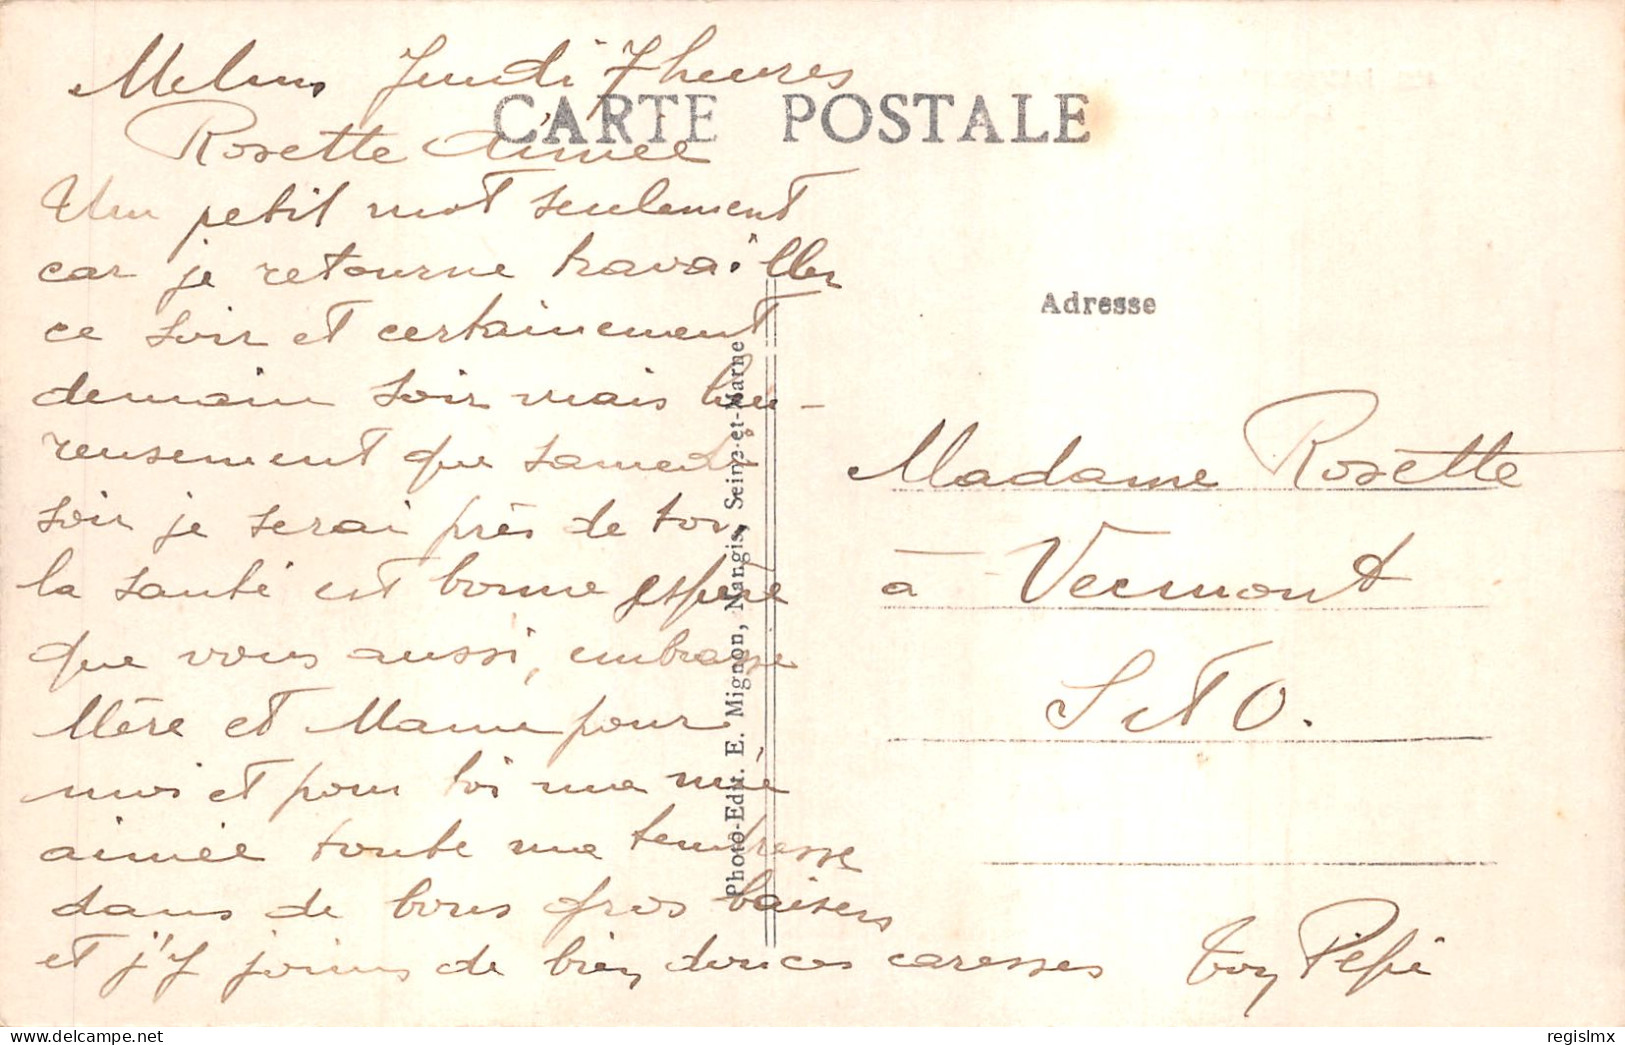 Melun Jeudi 7 heures
CARTE POSTALE
Rosette Aimée
Un petit mot seulement
car je retourne travailler
ce soir et certainement
demain soir mais heu-
reusement que samedi
soir je serai près de toi
la santé est bonne espère
que vous aussi, embrasse
Mère et Mamie pour
moi et pour toi ma mie
aimée toute ma tendresse
dans de bons gros baisers
et j'y joins de bien douces caresses
Ton Pépé
Photo-Edit. E. Mignon, Nangis, Seine-et-Marne
Adresse
Madame Rosette
à Vermont
S et O.
delcampe.net
regislmx